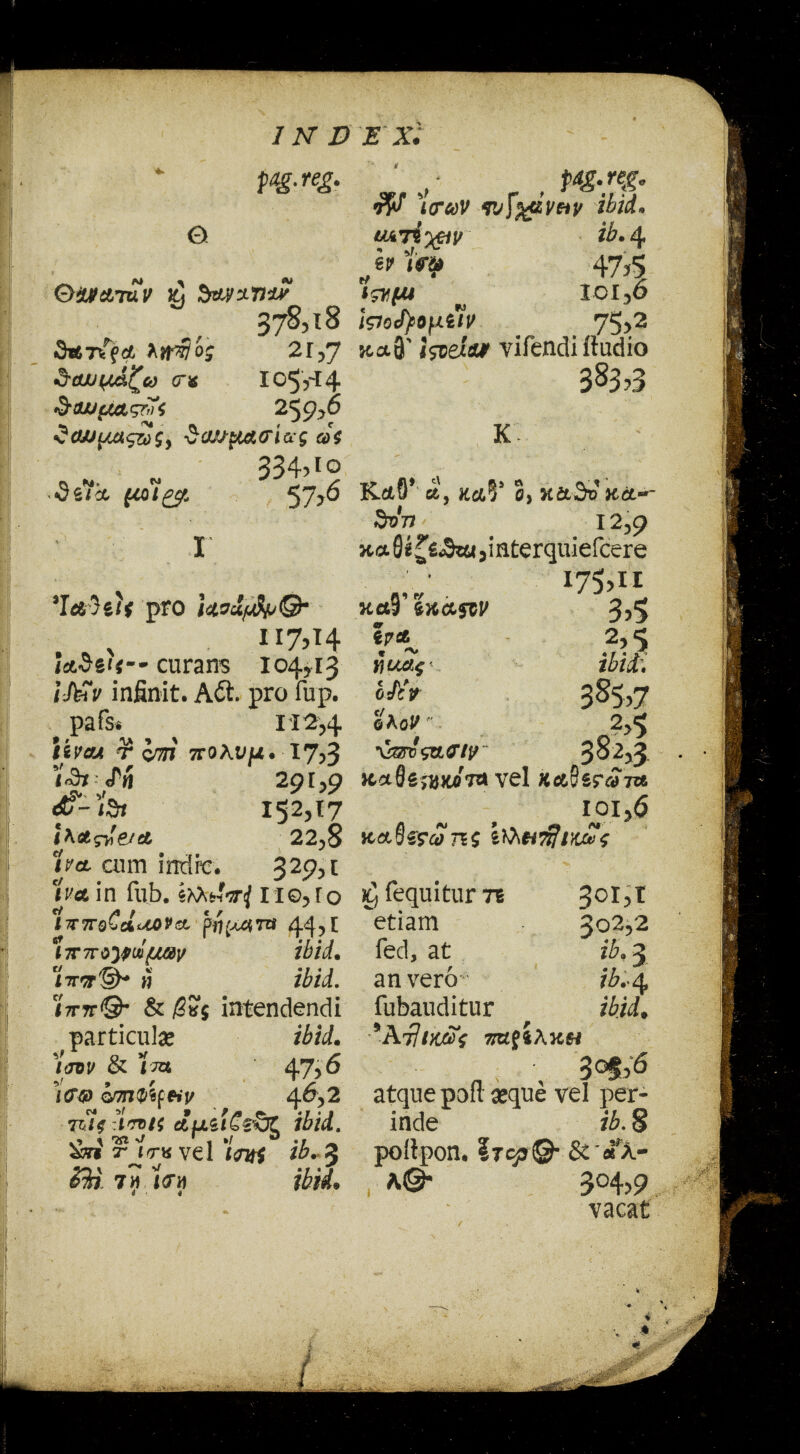 INDEX.
pag. reg.
Θ
Θανατᾶν καὶ θανατιᾶν
378,18
θατέρα ληπτὸς 21,7
θαυμάζω σου 105,14
θαυμαστῶς 259,6
θαυμαστῶς, θαυμασίας ὡς
334,10
θεία μοῖρα 57,6
I
Ἰαθεὶς pro ἰασάμενος
117,14
ἰαθεὶς-- curans 104,13
ἰδεῖν infinit. Act. pro ſup.
paſs. 112,4
ἰέναι τ ἐπὶ πολυμ. 17,3
ἴθι δὴ 291,9
ἴθι 152,17
22,8
ἵνα cum indic. 329,1
ἵνα in ſub. 110,10
ἱπποβάμονα ῥήματα 44,1
ἱππογνώμων ibid.
ἵππος ἢ ibid.
ἵππος & βοῦς intendendi
particulæ ibid.
ἴσον & ἴσα 47,6
ἴσῳ ἐπιφέρειν 46,2
τοῖς ἴσοις ἀμείβεσθαι ibid.
ἐπὶ τ ἴσου vel ἴσης ib. 3
ἐπὶ τῇ ἴσῃ ibid.
pag. reg.
τῶν ἴσων τυγχάνειν ibid.
ib. 4
ἐν ἴσῳ 47,5
ἵστημι 101,6
ἱστοδρομεῖν 75,2
καθ' ἱστορίαν viſendi ſtudio
383,3
K
Καθ' ἃ, καθ' ὃ, καθὸ κα-
θότι 12,9
καθέζεσθαι, interquieſcere
175,11
καθ' ἕκαστον 3,5
ἕνα 2,5
ἡμᾶς ibid.
ὁδὸν 385,7
ὅλον 2,5
ὑπόστασιν 382,3
καθεστηκότα vel καθεστῶτα
101,6
καθεστῶτες ἑλλειπτικῶς
καὶ ſequitur τε 301,1
etiam 302,2
ſed, at ib. 3
an vero ib. 4
ſubauditur ibid.
Ἀττικῶς παρέλκει
305,6
atque poſt æquè vel per-
inde ib. 8
poſtpon. ἕτερος & ἄλ-
λος 304,9
vacat